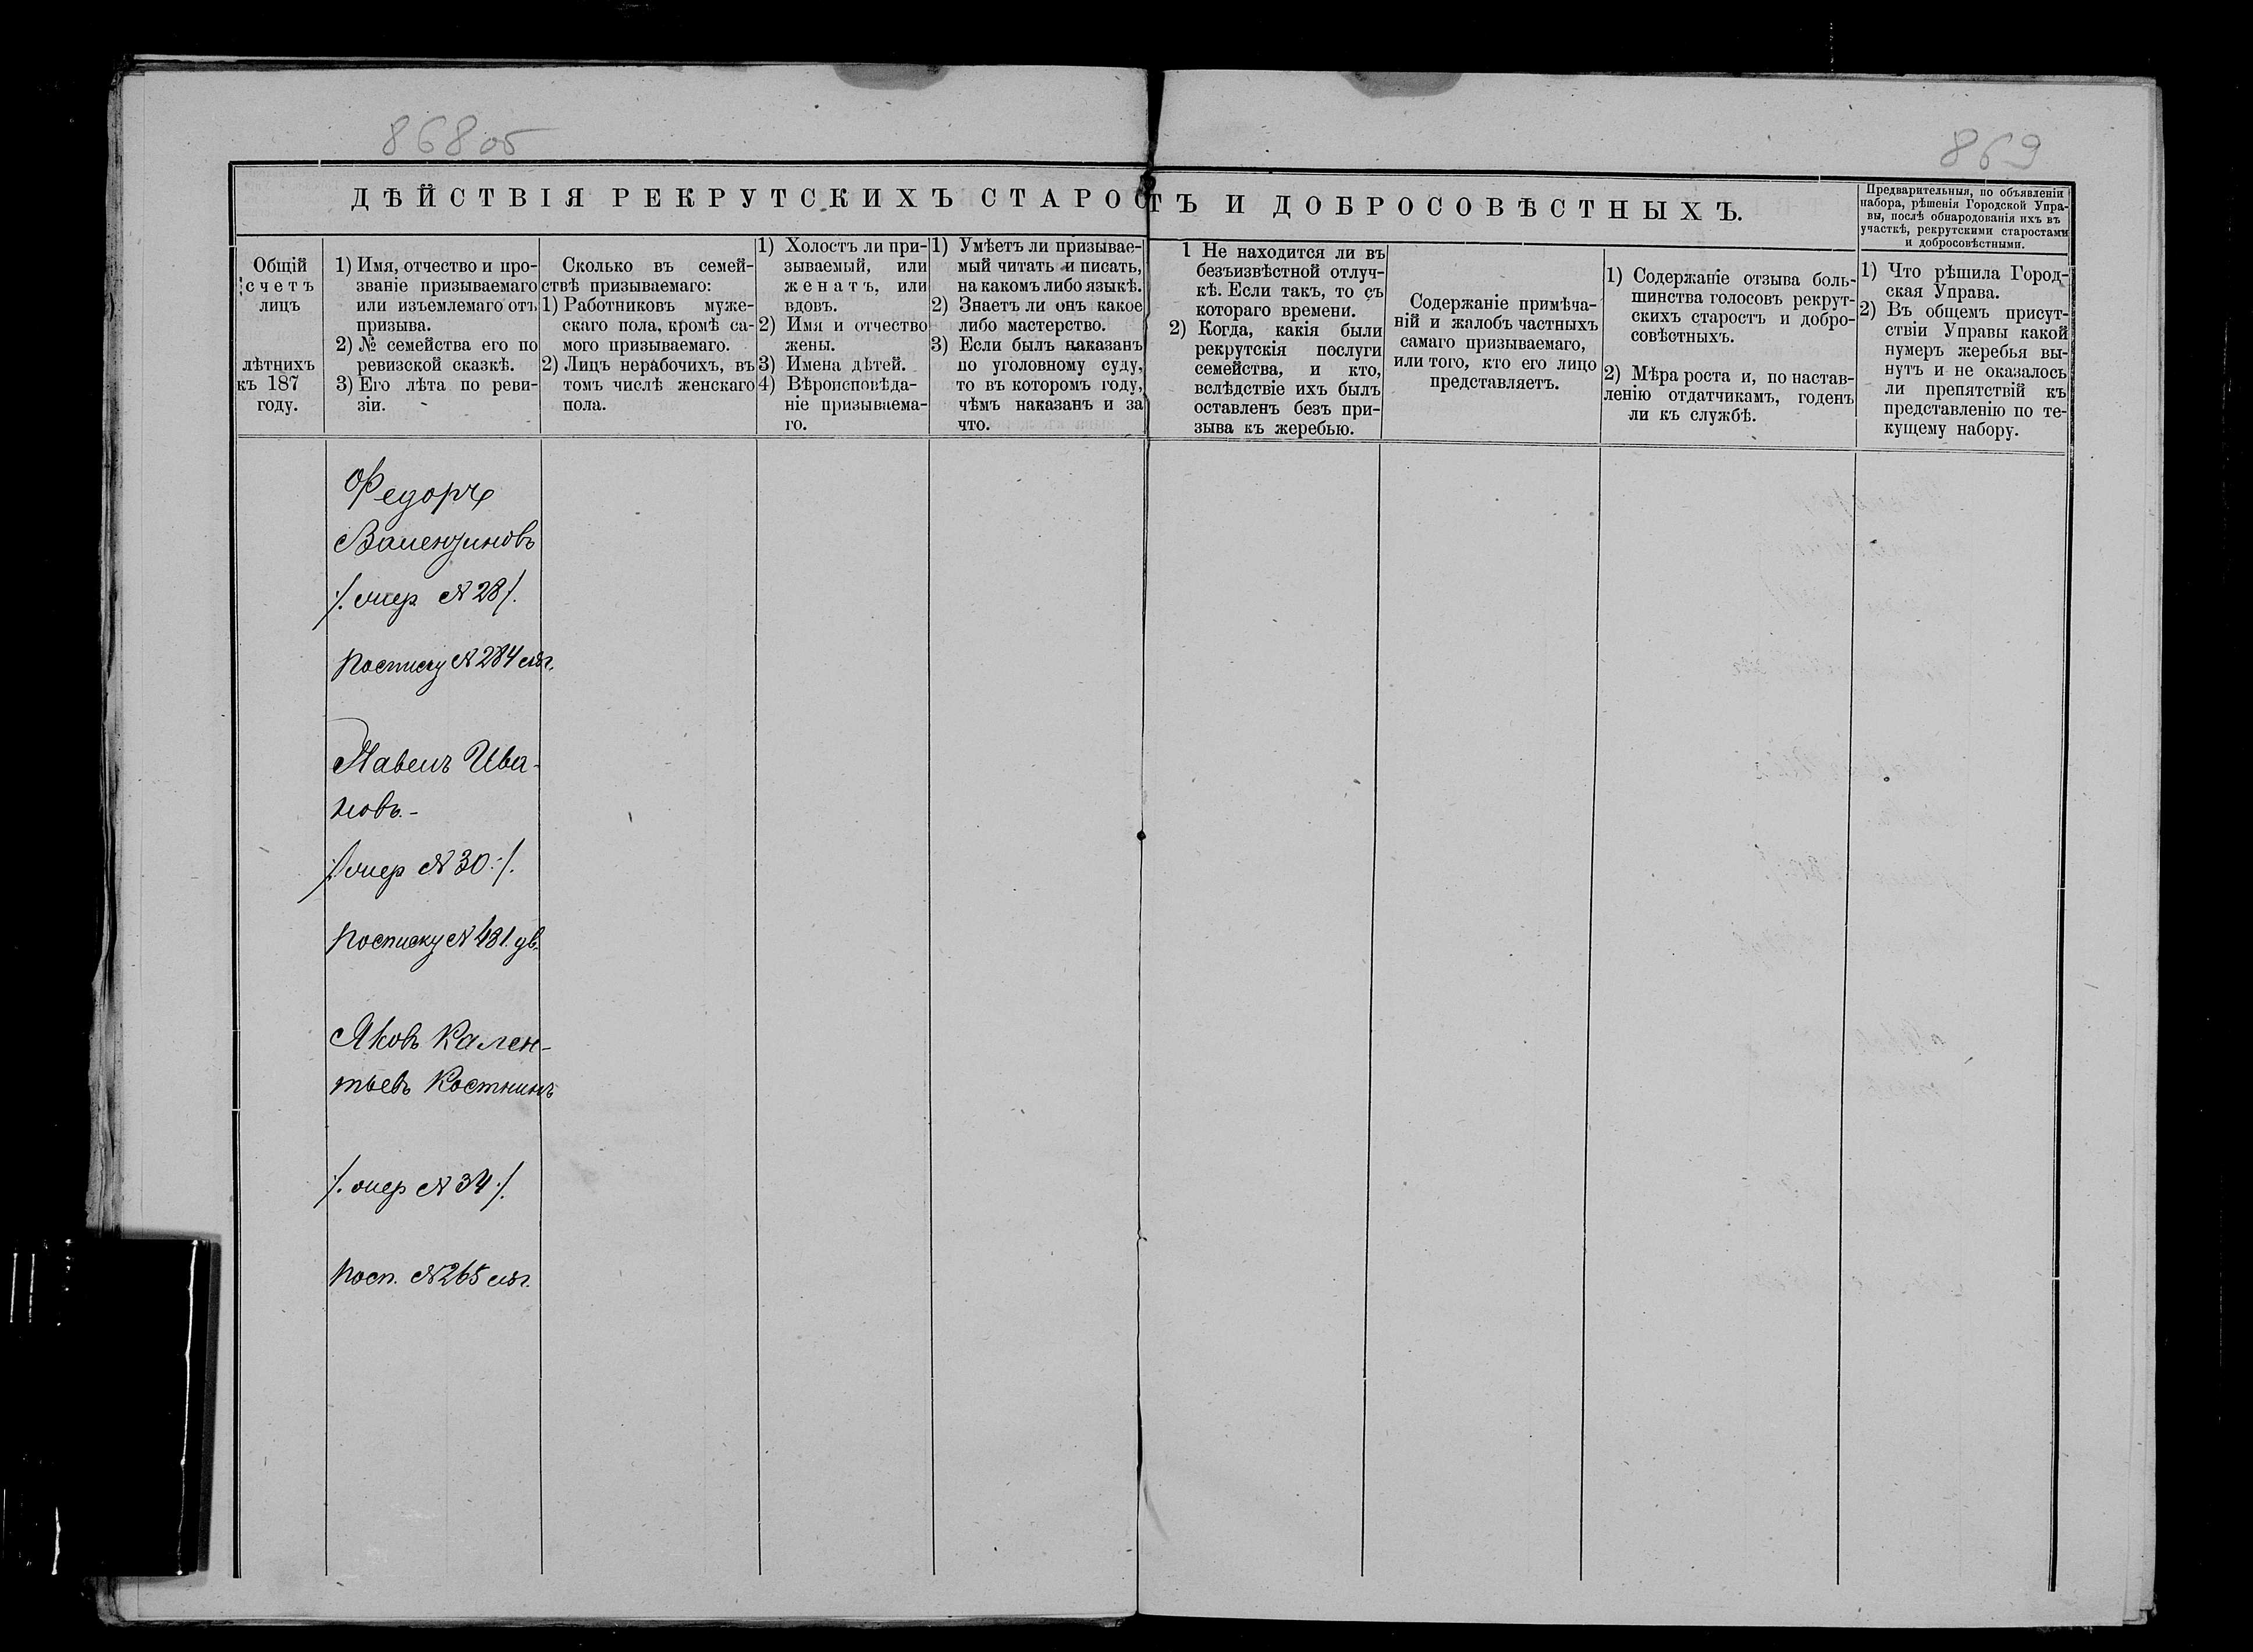 868 об
869
ДѢЙСТВІЯ РЕКРУТСКИХЪ СТАРОСТЪ И ДОБРОСОВѢСТНЫХЪ.
Предварительныя, по объявленіи
набора, рѣшенія Городской Упра-
вы, послѣ обнародованія ихъ въ
участкѣ, рекрутскими старостами
и добросовѣстными.
Общій
счетъ
лицъ
лѣтнихъ
къ 187
году.
1) Имя, отчество и про-
званіе призываемаго
или изъемлемаго отъ
призыва.
2) № семейства его по
ревизской сказкѣ.
3) Его лѣта по реви-
зіи.
Сколько въ семей-
ствѣ призываемаго:
1) Работниковъ муже-
скаго пола, кромѣ са-
мого призываемаго.
2) Лицъ нерабочихъ, въ
томъ числѣ женскаго
пола.
1) Холостъ ли при-
зываемый, или
женатъ, или
вдовъ.
2) Имя и отчество
жены.
3) Имена дѣтей.
4) Вѣроисповѣда-
ніе призываема-
го.
1) Умѣетъ ли призывае-
мый читать и писать,
на какомъ либо языкѣ.
2) Знаетъ ли онъ какое
либо мастерство.
3) Если былъ наказанъ
по уголовному суду,
то въ которомъ году,
чѣмъ наказанъ и за
что.
1 Не находится ли въ
безъизвѣстной отлуч-
кѣ. Если такъ, то съ
котораго времени.
2) Когда, какія были
рекрутскія послуги
семейства, и кто,
вслѣдствіе ихъ былъ
оставленъ безъ при-
зыва къ жеребью.
Содержаніе примѣча-
ній и жалобъ частныхъ
самаго призываемаго,
или того, кто его лицо
представляетъ.
1) Содержаніе отзыва боль-
шинства голосовъ рекрут-
скихъ старостъ и добро-
совѣстныхъ.
2) Мѣра роста и, по настав-
ленію отдатчикамъ, годенъ
ли къ службѣ.
1) Что рѣшила Город-
ская Управа.
2) Въ общемъ присут-
ствіи Управы какой
нумеръ жеребья вы-
нутъ и не оказалось
ли препятствій къ
представленію по те-
кущему набору.
Федоръ
/. № 28 /.
№ 284
Павелъ Ива-
новъ.-
/. № 30 :/.
№ 431.
Яковъ Кален-
тьевъ Костнинъ
/. № 34 /.
№ 265